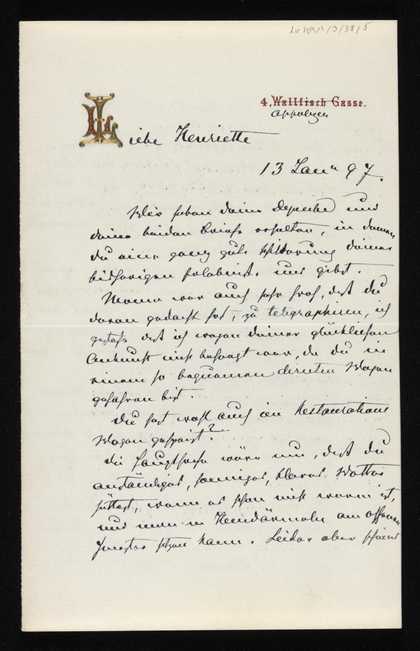 4, Wallfisch Gasse.
Liebe Henriette
13 Jan 97.
Wir haben deine Depesche und
deine beiden Briefe erhalten, in denen
du eine ganz gute Schilderung deiner
bisherigen Erlebnisse uns gibst.
Mama war auch sehr froh, dass du
daran gedacht hast, zu telegraphiren, ich
dass ich wegen deiner glücklichen
Ankunft nicht besorgt war, da du in
einem so bequemen Wagen
gefahren bist.
Du hast wohl auch im Restaurations
Wagen gespeist?
Die Hauptsache wäre nun, dass du
anständiges, sonniges, klares Wetter
hättest, wenn es schon nicht warm ist,
und man in Hemdärmeln am offenen
Fenster sitzen kann. Leider aber scheint